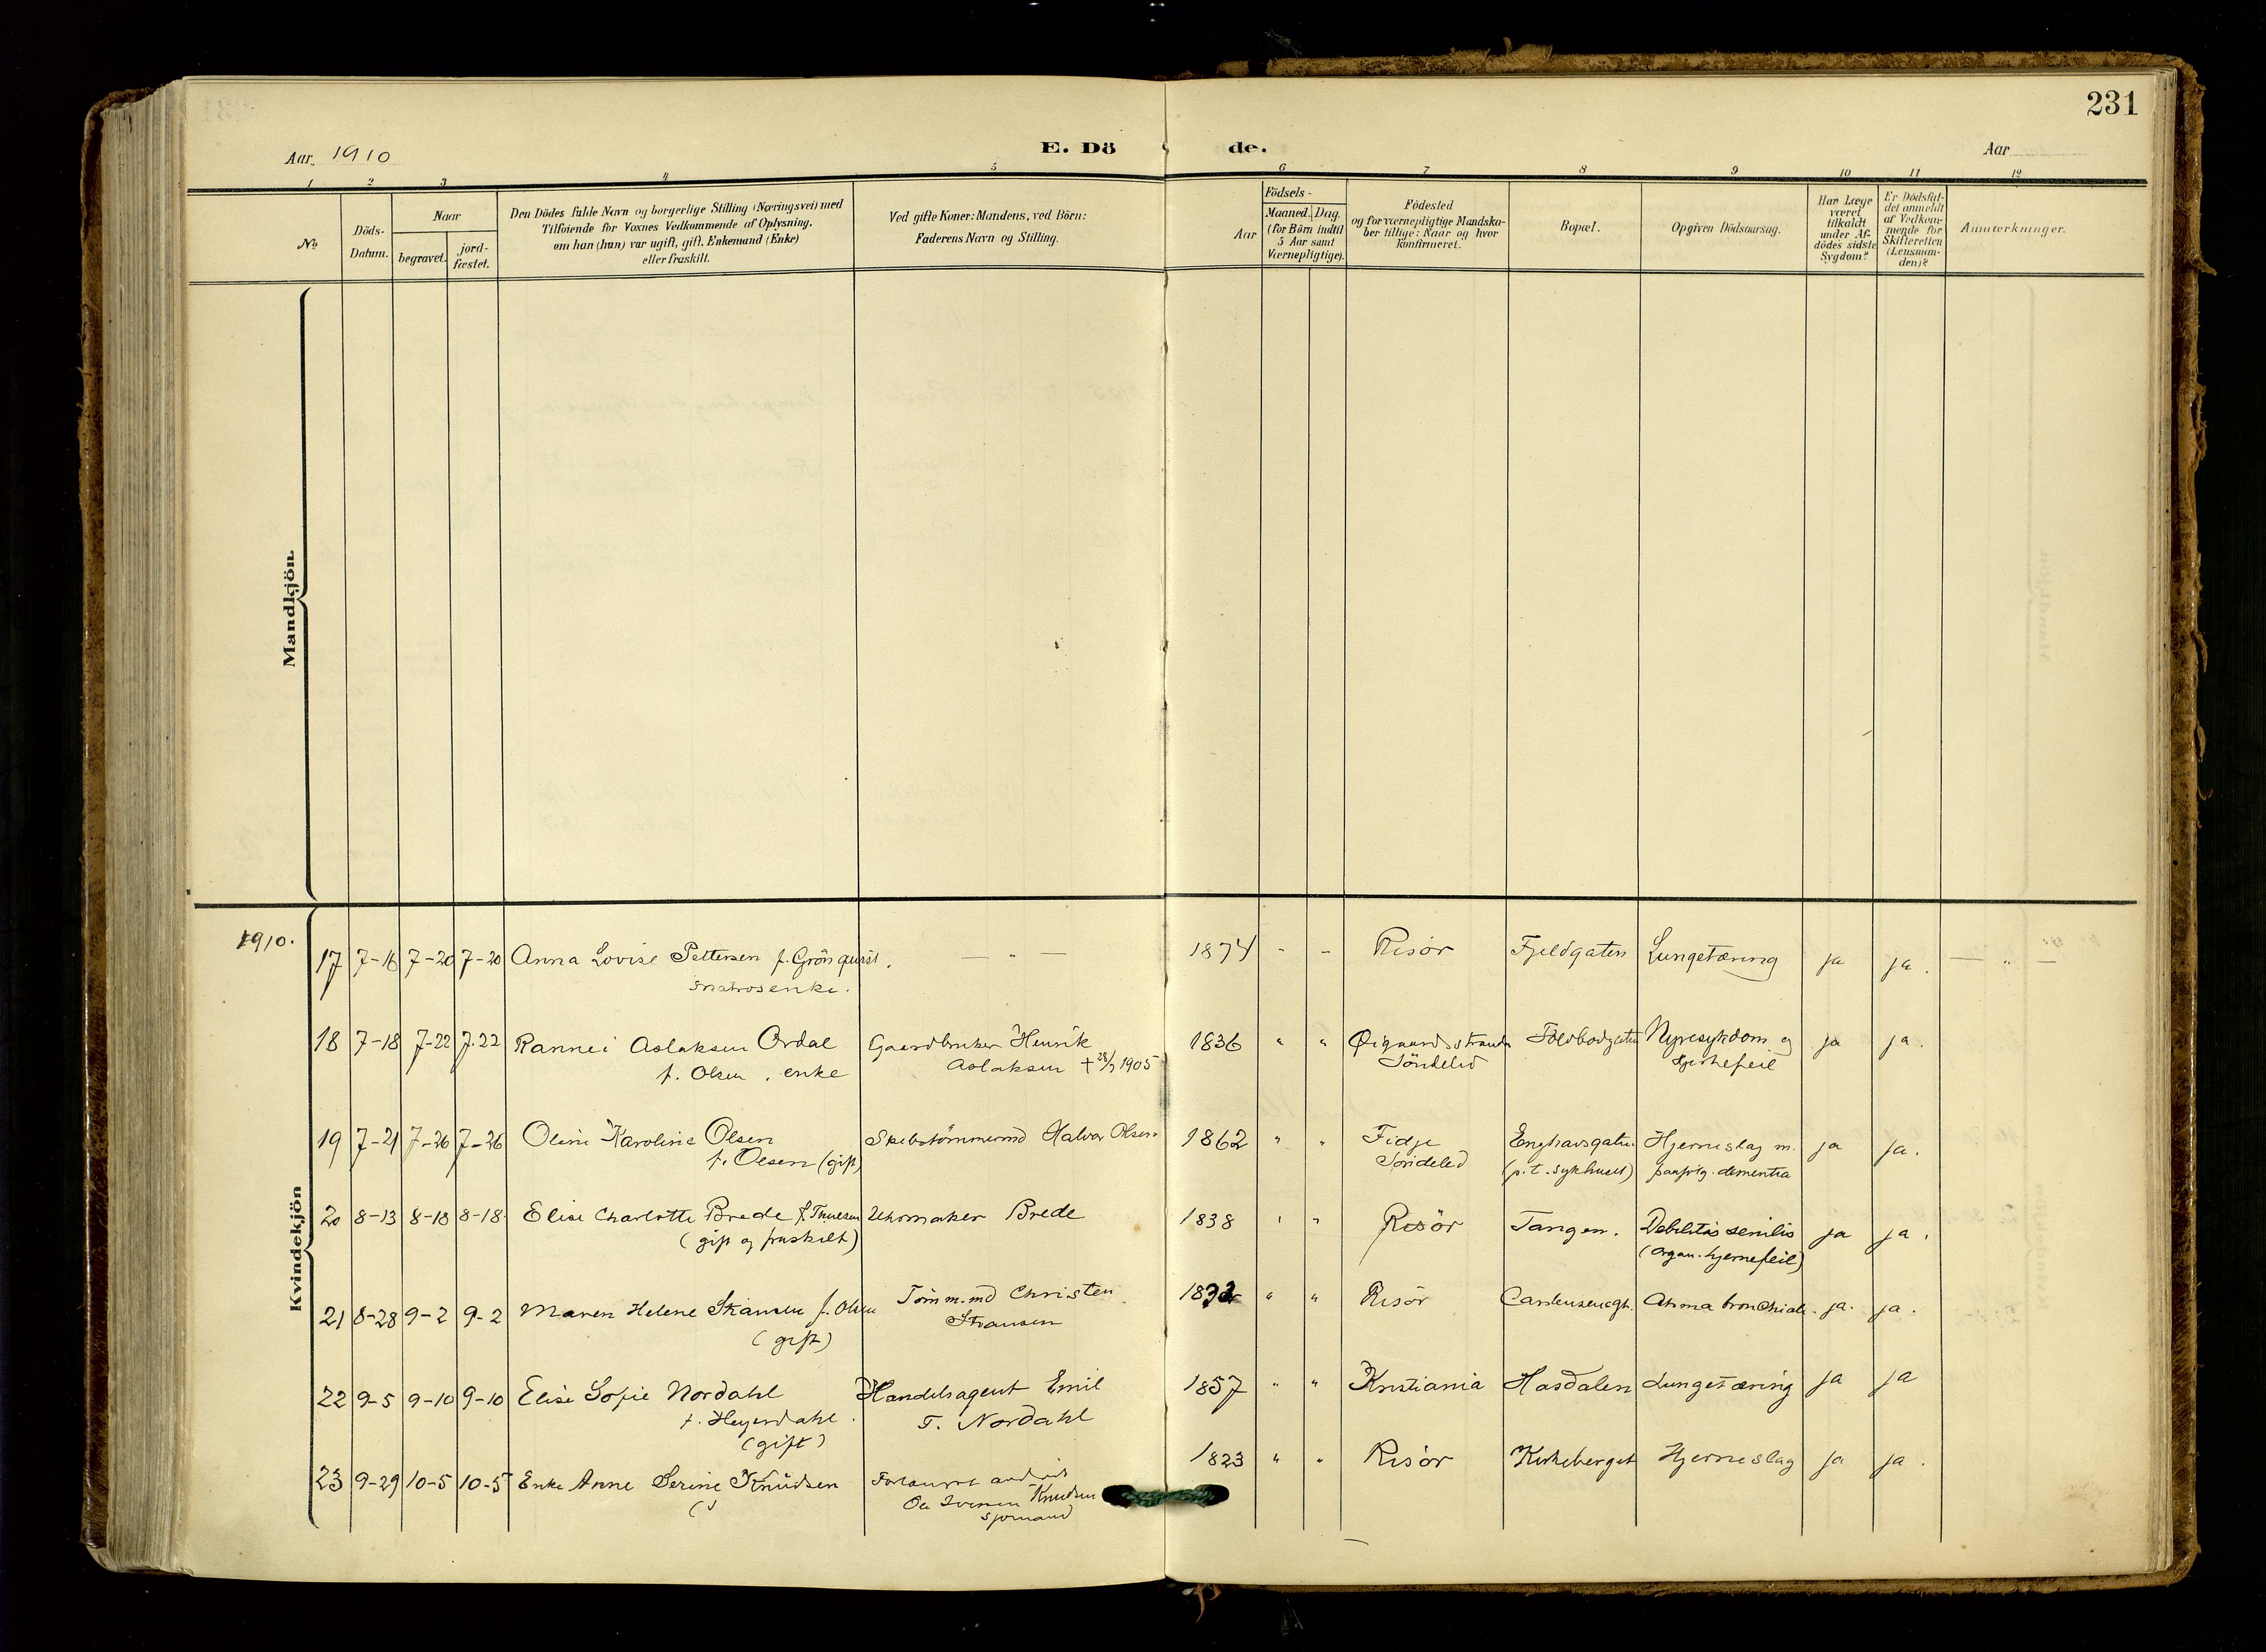 231
Aar. 1910
E. Dö de.
Aar
1 2 3 4 5 6 7 8 9 10 11 12
No
Döds-Datum.
Naar
begravet.
jord-fæstet.
Den Dödes fulde Navn og borgerlige Stilling (Næringsvei) med
Tilföiende for Voxnes Vedkommende af Oplysning,
om han (hun) var ugift, gift, Enkemand (Enke)
eller fraskilt.
Ved gifte Koner: Mandens, ved Börn:
Faderens Navn og Stilling.
Aar
Födsels-
Maaned. Dag.
(for Börn indtil
5 Aar samt
Værnepligtige).
Födested
og for værnepligtige Mandska-
ber tillige: Naar og hvor
konfirmeret.
Bopæl.
Opgiven Dödsaarsag.
Har Læge
været
tilkaldt
under Af-
dödes sidste
Sygdom?
Er Dödsfal-
det anmeldt
af Vedkom-
mende for
Skifteretten
(Lensman-
den)?
Anmærkninger.
Mandkjön.
Kvindekjön
1910.
17 7-16 7-20 7-20 Anna Lovise Pettersen f. Grönquist. — " — 1874 - - Risör Fjeldgaten Lungetæring ja ja. — " —
matrosenke.
18 7-18 7-22 7.22 Rannei Aslaksen Ordal Gaardbruker Henrik 1836 " " Øigaardsstrand Toldbodgaten Nyresykdom og ja ja.
f. Olsen, enke Aslaksen † 28/7 1905 Söndeled Hjertefeil
19 7-21 7-26 7-26 Oline Karoline Olsen Skibstömmermd Halvor Olsen 1862 " " Fidje Enghavsgaten Hjerneslag m. ja ja.
f. Olsen (gift) Söndeled (p.t. sykhuset) paafölg. dementia
20 8-13 8-18 8-18. Elise Charlotte Brede f. Thuesen Urhomaker Brede 1838 " " Risör Tangen. Debilitas senilis ja ja.
(gift og fraskilt) (organ. hjernefeil)
21 8-28 9-2 9-2 Maren Helene Stiansen f. Olsen Tömm.md Christen " " Risör Carstensensgt. Astma bronchiale. ja. ja.
(gift) Stiansen
22 9-5 9-10 9-10 Elise Sofie Nordahl Handelsagent Emil 1857 " " Kristiania Hasdalen Lungetæring ja ja
f. Heyerdahl. T. Nordahl
(gift)
23 9-29 10-5 10-5 Enke Anne Serine Knudsen 1823 " " Risör Kirkeberget Hjerneslag ja ja.
Knudsen
sjömand